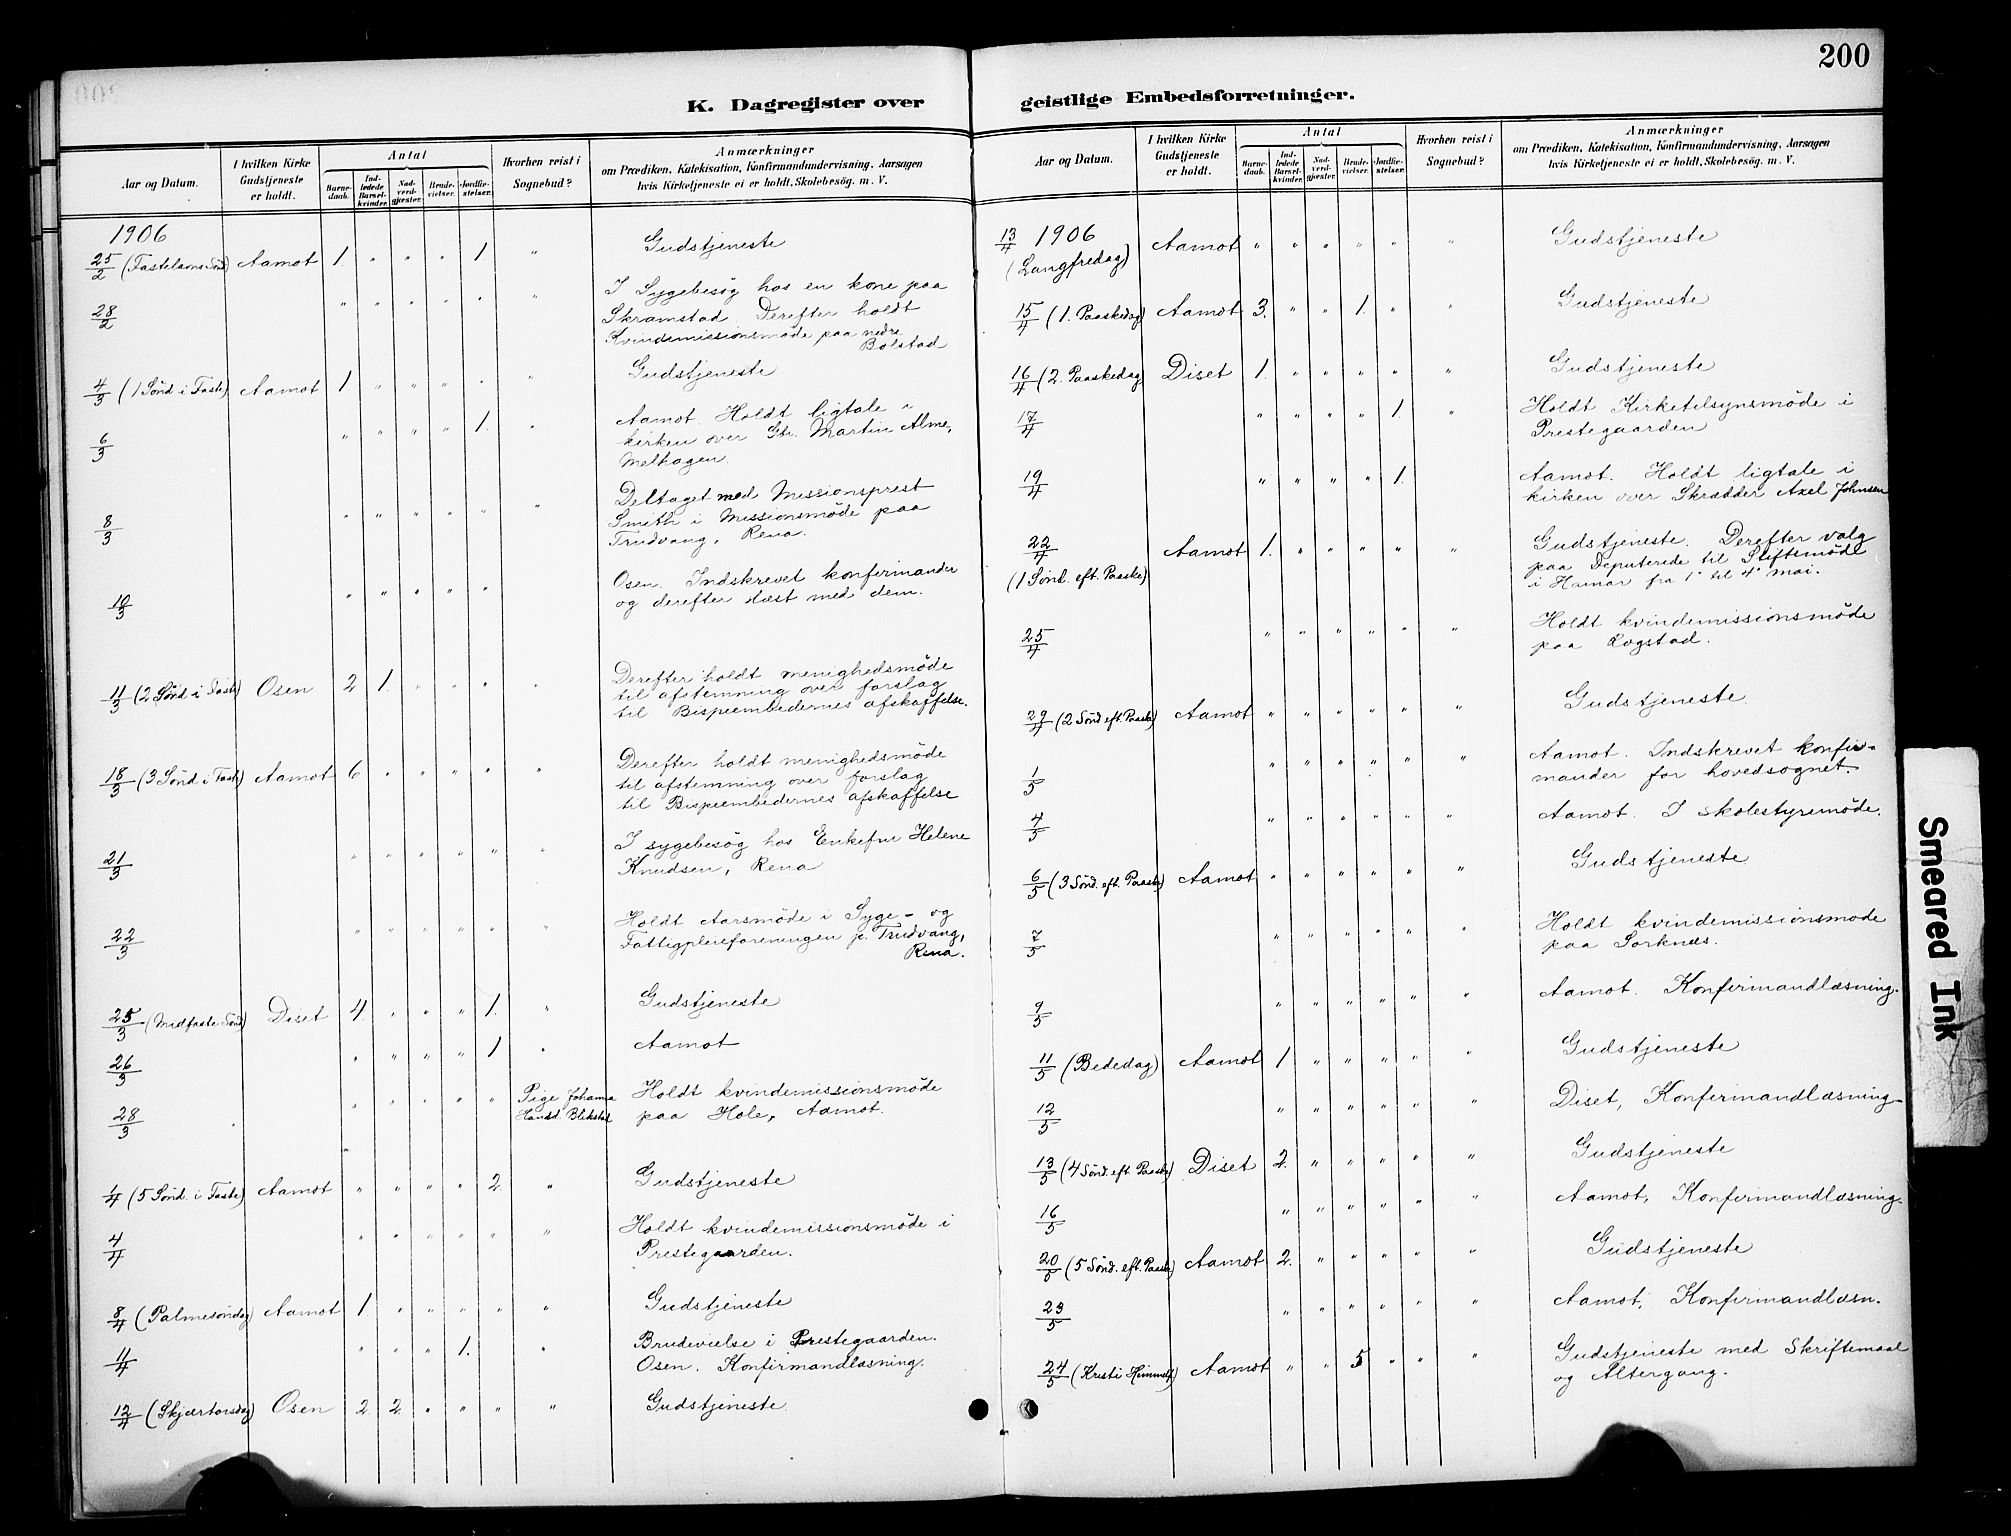 200
K. Dagregister over
Aar og Datum.
I hvilken Kirke Gudstjeneste er holdt.
Antal
Barnedaab.
Indledede Barselkvinder.
Nadverdgjæster.
Brudevielser.
Jordfæstelser.
Hvorhen reist i Sognebud?
Anmærkninger
om Prædiken, Katekisation, Konfirmandundervisning, Aarsagen
hvis Kirketjeneste ei er holdt, Skolebesög. m. V.
1906
25/2 (Fastelavns Sønd) Aamot 1. " " " 1 " Gudstjeneste
28/2 " " " " " " I Sygebesög hos en kone paa
Skramstad. Derefter holdt
Kvindemissionsmøde paa nedre
Bolstad
4/3 (1 Sönd i Faste) Aamot 1 " " " " " Gudstjeneste
6/3 " " " " 1. " Aamot. Holdt ligtale i
kirken over Martin Alme,
Melhagen.
8/3 " " " " " " Deltaget med Missionsprest
Smith i Missionsmöde paa
Trudvang, Rena.
10/3 " " " " " Osen. Indskrevet konfirmander
og derefter læst med dem.
11/3 (2 Sönd. i Faste) Osen 2 1. " " " " Derefter holdt menighedsmöde
til afstemning over forslag
til Bispeembedernes afskaffelse.
18/3 (3 Sönd i Faste) Aamot 6 " " " " " Derefter holdt menighedsmöde
til afstemning over forslag
til Bispeembedernes afskaffelse
21/3 " " " " " " I sygebesög hos Enkefru Helene
Knudsen, Rena
22/3 " " " " " " Holdt Aarsmöde i Syge- og
Fattigpleieforeningen p. Trudvang,
Rena.
25/3 (Midfaste Sönd) Diset 4. " " " 1. " Gudstjeneste
26/3 " " " " 1 " Aamot
28/3 " " " " " Pige Johanna Holdt kvindemissionsmöde
Hansd. Blikstad paa Hole, Aamot.
1/4 (5 Sönd. i Faste) Aamot " " " " 2 " Gudstjeneste
4/4 " " " " " " Holdt kvindemissionsmöde i
Prestegaarden.
8/4 (Palmesöndag) Aamot 1. " " " " " Gudstjeneste
11/4 " " " 1. " Brudevielse i Prestegaarden.
Osen. Konfirmandlæsning.
12/4 (Skjærtorsdag) Osen 2 2 " " " " Gudstjeneste.
geistlige Embedsforretninger.
Aar og Datum.
I hvilken Kirke Gudstjeneste er holdt.
Antal
Barnedaab.
Indledede Barselkvinder.
Nadverdgjæster.
Brudevielser.
Jordfæstelser.
Hvorhen reist i Sognebud?
Anmærkninger
om Prædiken, Katekisation, Konfirmandundervisning, Aarsagen
hvis Kirketjeneste ei er holdt, Skolebesög. m. V.
13/4 1906
(Langfredag) Aamot " " " " " " Gudstjeneste
15/4 (1. Paaskedag) Aamot 3. " " 1. " " Gudstjeneste
16/4 (2. Paaskedag) Diset 1. " " " " " Gudstjeneste
17/4 " " " " 1 " Holdt Kirketilsynsmöde i
Prestegaarden
19/4 " " " " 1. Aamot. Holdt ligtale i
kirken over Skrædder Axel Johnsen
22/4 Aamot 1. " " " " " Gudstjeneste. Derefter valg
(1 Sönd. eft. Paaske) paa Deputerede til Stiftsmöde
i Hamar fra 1' til 4' mai.
25/4 " " " " " " Holdt kvindemissionsmöde
paa Løgstad.
29/4 (2 Sönd eft. Paaske) Aamot " " " " " " Gudstjeneste
1/5 " " " " " " Aamot. Indskrevet konfir-
mander for hovedsognet.
4/5 " " " " " " Aamot. I skolestyremöde.
6/5 (3 Sönd. eft. Paaske) Aamot " " " " " " Gudstjeneste
7/5 " " " " " " Holdt kvindemissionsmöde
paa Sorknæs.
9/5 " " " " " " Aamot. Konfirmandlæsning.
11/5 (Bededag) Aamot 1 " " " " " Gudstjeneste
12/5 " " " " " " Diset, Konfirmandlæsning
13/5 (4 Sönd. eft. Paaske) Diset 2. " " " " " Gudstjeneste
16/5 " " " " " " Aamot, Konfirmandlæsning.
20/5 (5 Sönd. eft. Paaske) Aamot 2. " " " " " Gudstjeneste
23/5 " " " " " " Aamot, Konfirmandlæsn.
24/5 (Kristi Himmelf) Aamot " " 5 " " " Gudstjeneste med Skriftemaal
og Altergang.
Smeared Ink